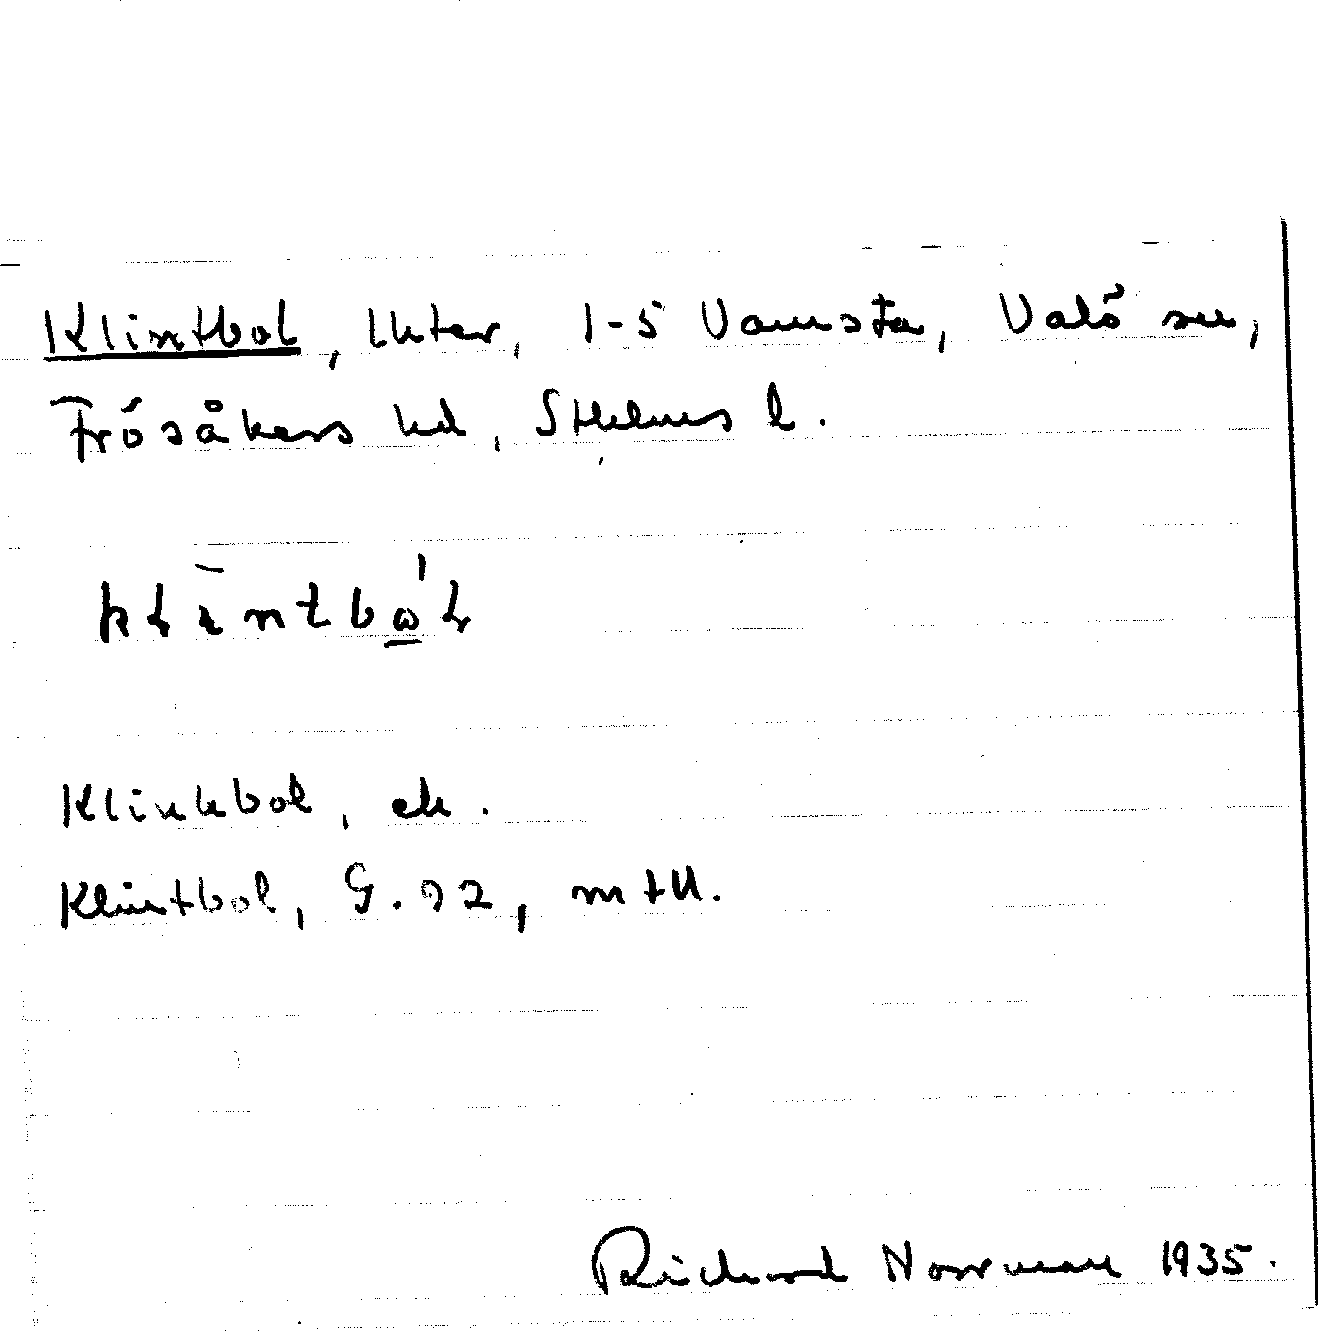 Klintbol, lhter, 1-5 Vamsta, Valö sn,
Frösåkers hd, Sthlms l.
Klinkbol, ek.
Klintbol, G. 92, mtU.
Richard Norrman 1935.